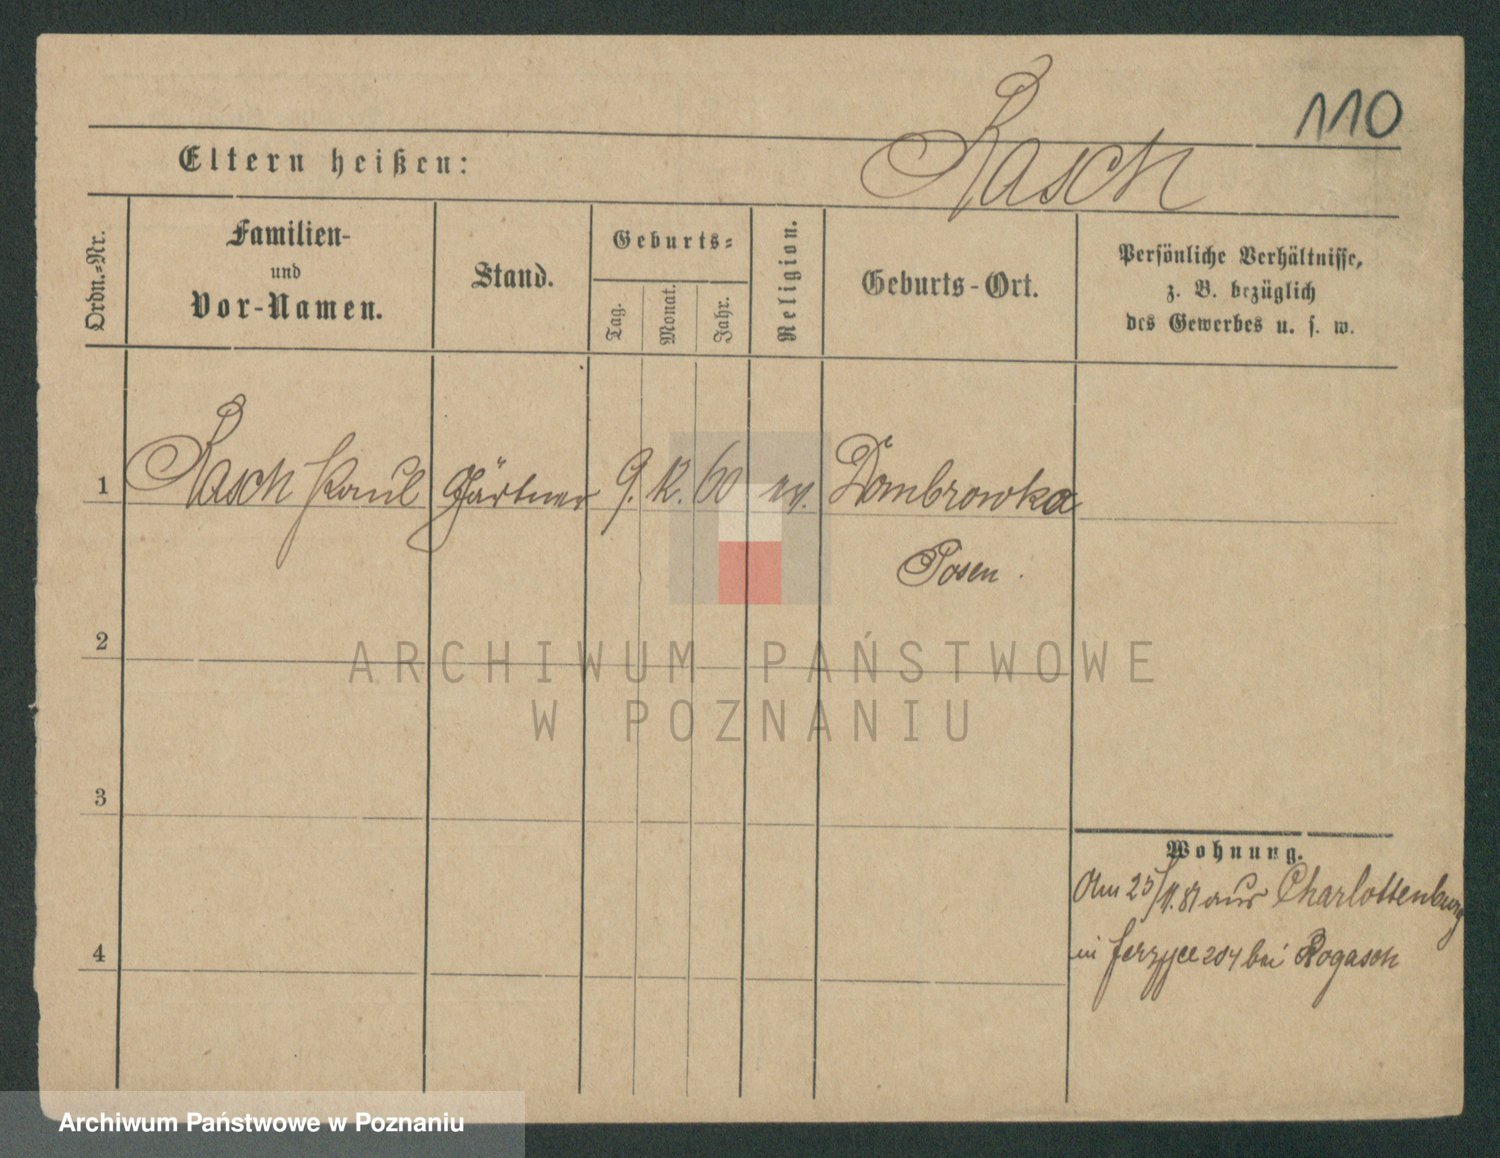 110
Rasch
Eltern heißen:
Ordn.-Nr.
Familien-
und
Vor-Namen.
Stand.
Geburts-
Tag.
Monat.
Jahr.
Religion.
Geburts-Ort.
Persönliche Verhältnisse,
z. B. bezüglich
des Gewerbes u. s. w.
1 Rasch Paul Gärtner 9. 12. 60 ev. Dombrowka
Posen.
2
3
4
Wohnung.
Am 25/11.81 aus Charlottenburg
in Jerzyce 204 bei Rogasch
ARCHIWUM PAŃSTWOWE
W POZNANIU
Archiwum Państwowe w Poznaniu